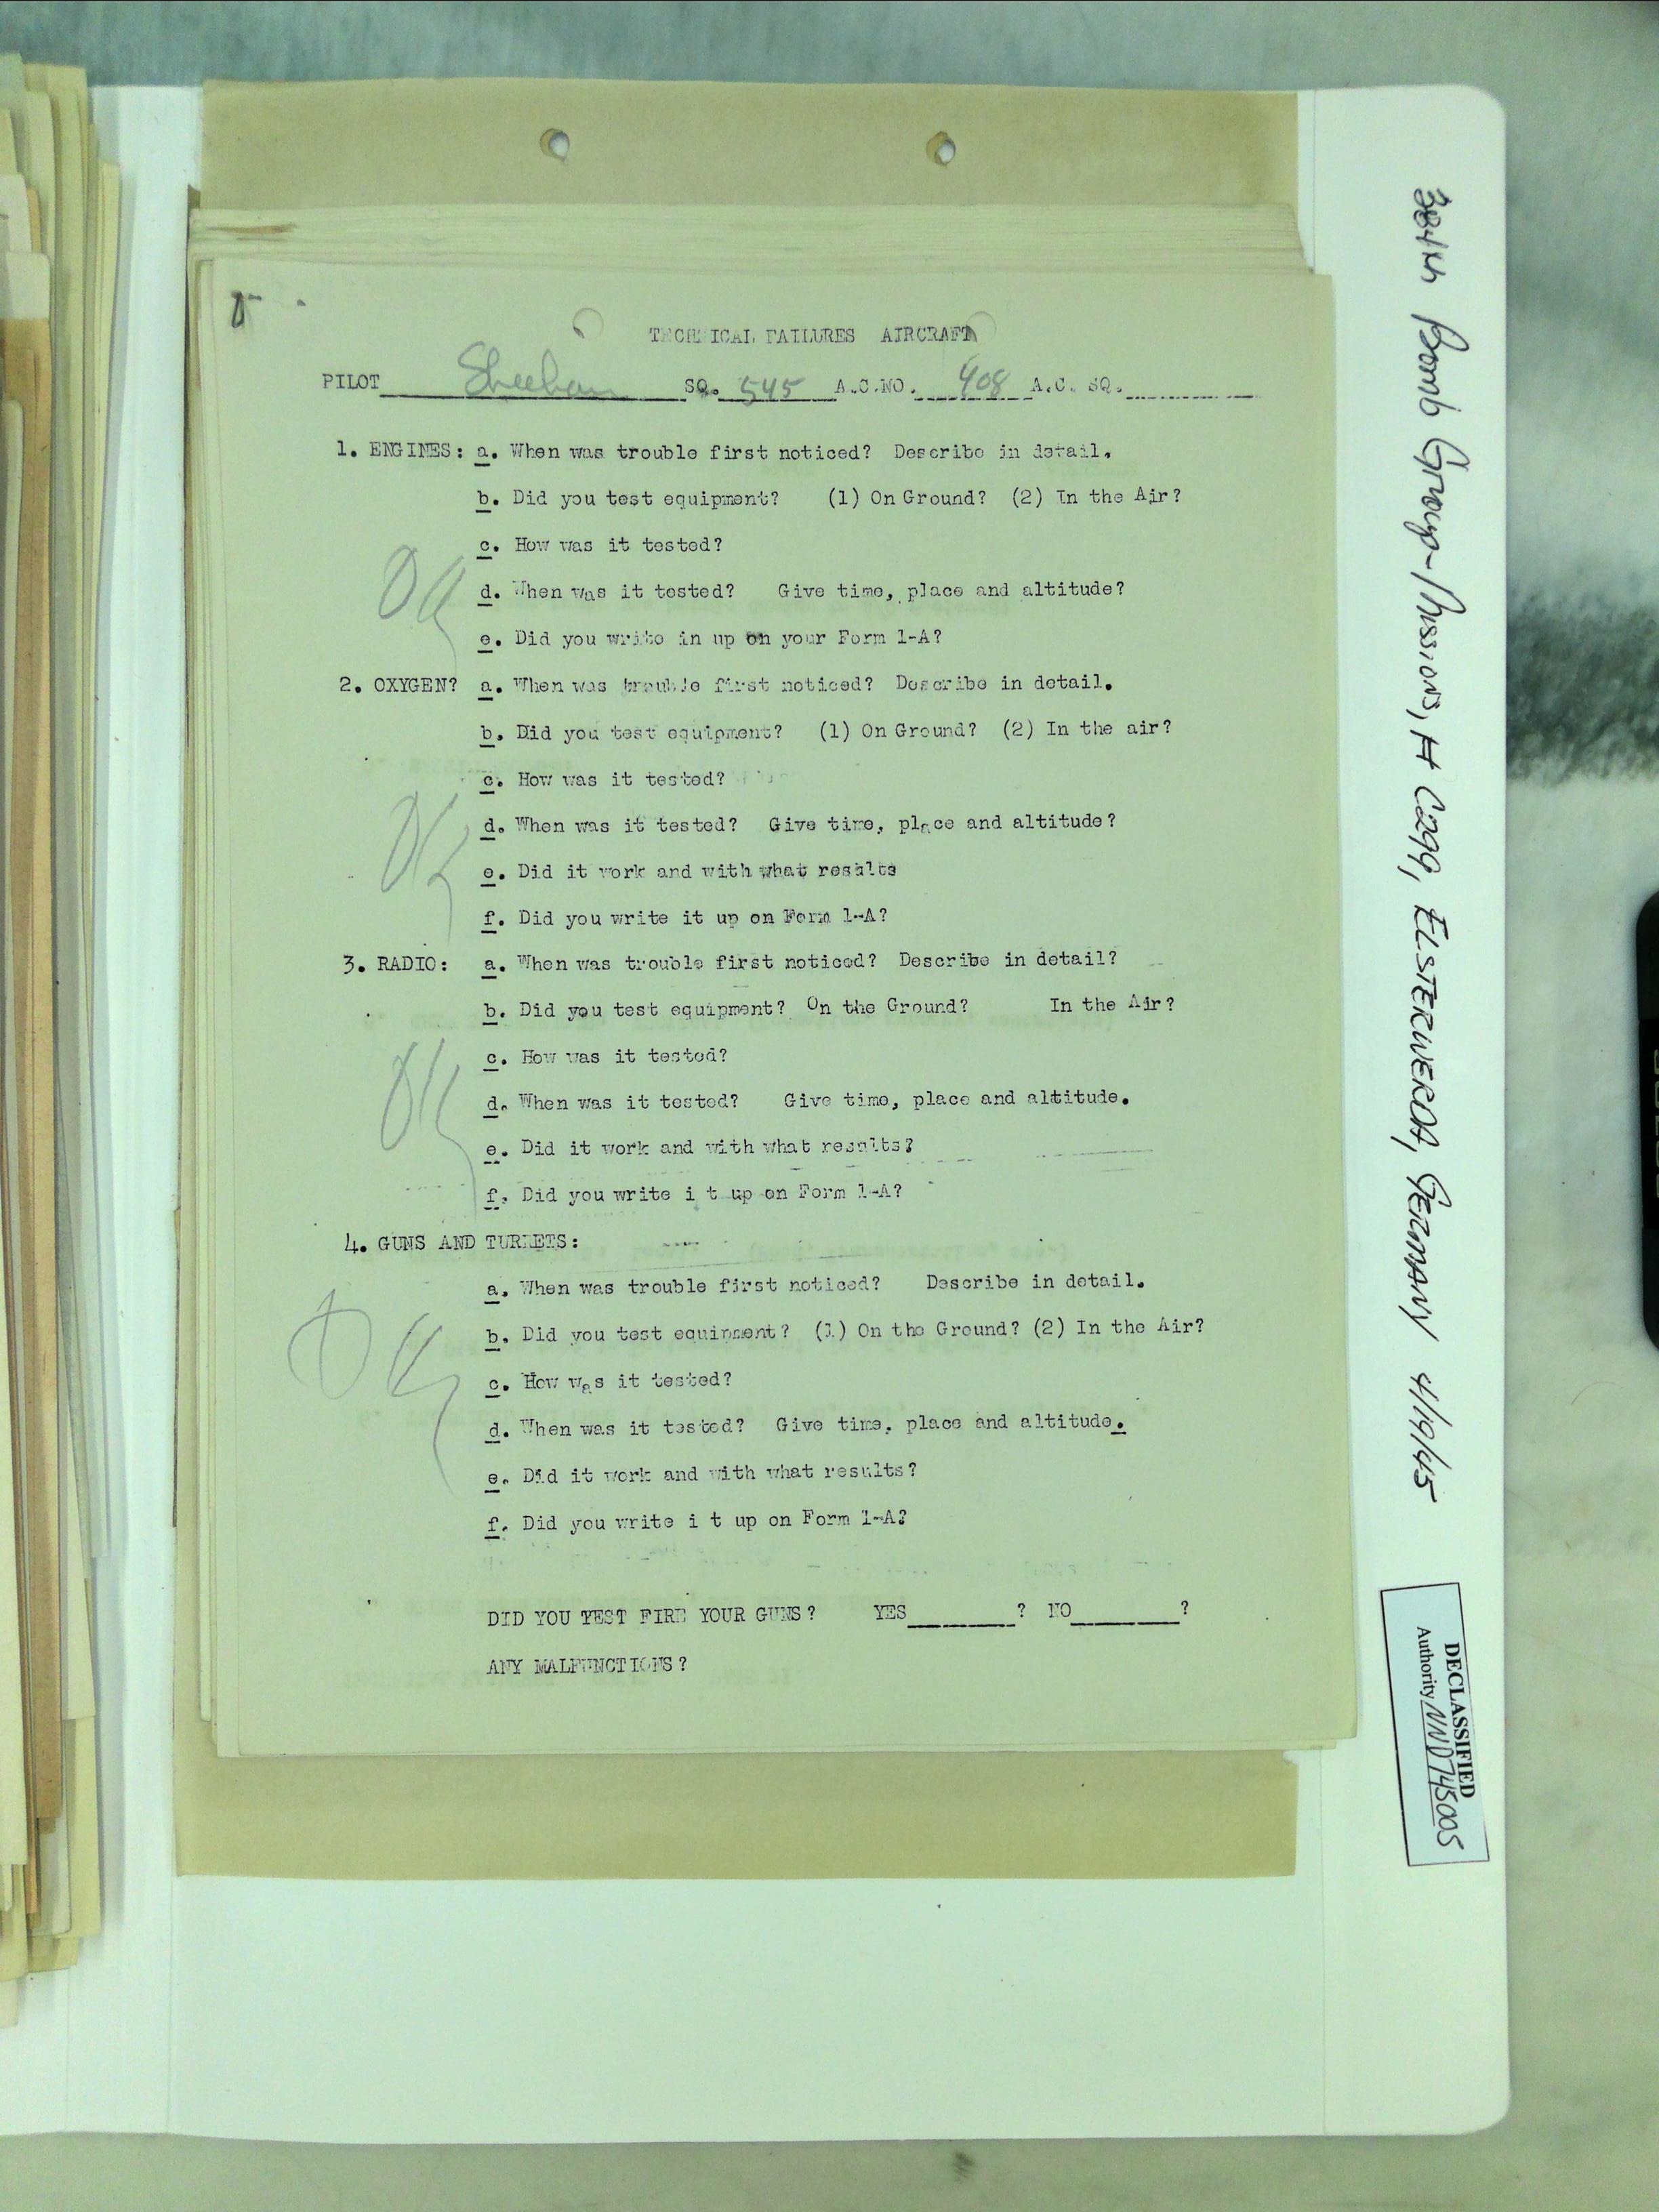 TECHNICAL FAILURES AIRCRAFT
PILOT Sheehan SQ. 545 A.C.NO. 408 A.C. SQ.
1. ENGINES: a. When was trouble first noticed? Describe in detail.
b. Did you test equipment? (1) On Ground? (2) In the Air?
c. How was it tested?
OK
d. When was it tested? Give time, place and altitude?
e. Did you write in up on your Form 1-A?
2. OXYGEN? a. When was trouble first noticed? Describe in detail.
b. Did you test equipment? (1) On Ground? (2) In the air?
c. How was it tested?
OK
d. When was it tested? Give time, place and altitude?
e. Did it work and with what results
f. Did you write it up on Form 1-A?
3. RADIO: a. When was trouble first noticed? Describe in detail?
b. Did you test equipment? On the Ground? In the Air?
c. How was it tested?
OK
d. When was it tested? Give time, place and altitude.
e. Did it work and with what results?
f. Did you write i t up on Form 1-A?
4. GUNS AND TURRETS:
a. When was trouble first noticed? Describe in detail.
OK
b. Did you test equipment? (1) On the Ground? (2) In the Air?
c. How was it tested?
d. When was it tested? Give time, place and altitude.
e. Did it work and with what results?
f. Did you write i t up on Form 1-A?
DID YOU TEST FIRE YOUR GUNS? YES ? NO ?
ANY MALFUNCTIONS?
384th Bomb Group-Missions, # C299, ELSTERWERDA, GERMANY 4/19/45
DECLASSIFIED
Authority NND745005